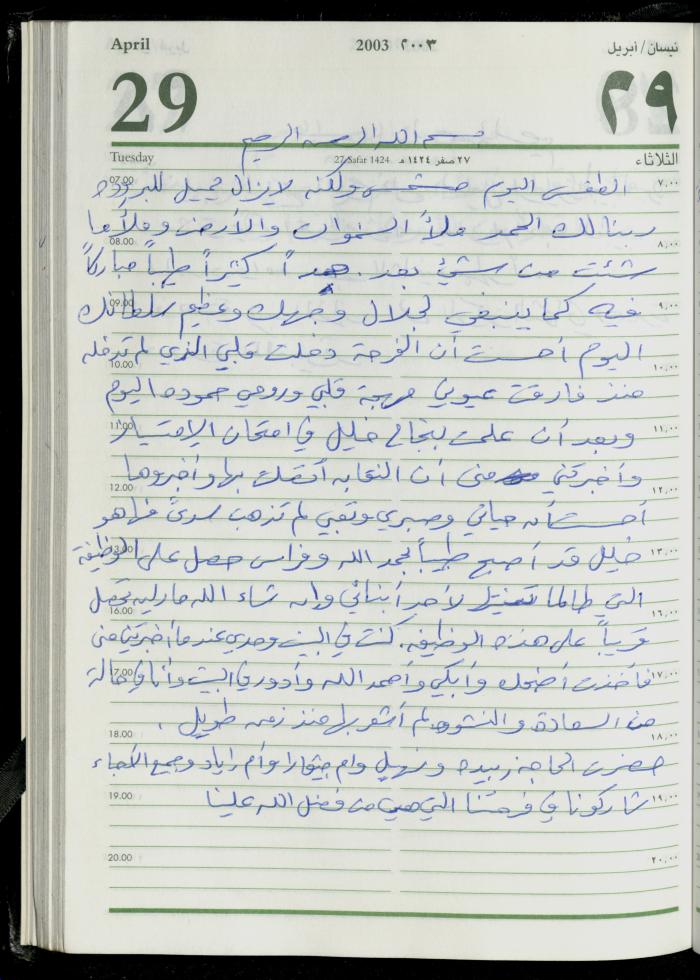 April
2003 ٢٠٠٣
نيسان / أبريل
29
٢٩
بسم الله الرحمن الرحيم
Tuesday
27 Safar 1424 ٢٧ صفر ١٤٢٤ هـ
الثلاثاء
07.00 الطقس اليوم مشمس ولكنه لا يزال يميل للبرودة ٧,٠٠
ربنا لك الحمد ملأ السموات والأرض وملأ ما
08.00 شئت من شيئ بعد. حمداً كثيراً طيباً مباركاً ٨,٠٠
09.00 فيه كما ينبغي لجلال وجهك وعظيم سلطانك ٩,٠٠
اليوم أحسست أن الفرحة دخلت قلبي الذي لم تدخله
10.00 منذ فارقت عيوني مهجة قلبي وروحي حموده اليوم ١٠,٠٠
11.00 وبعد أن علمت بنجاح خليل في امتحان الإمتياز ١١,٠٠
وأخبرتني منى أن النقابه أتصلت بها وأخبروها
12.00 أحسست أنه حياتي وصبري وتعبي لم تذهب سدىً فها هو ١٢,٠٠
13.00 خليل قد أصبح طبيباً بحمد الله وفراس حصل على الوظيفة ١٣,٠٠
التي طالما تمنيتها لأحد أبنائي وإن شاء الله مارليه تحصل
16.00 قريباً على هذه الوظيفه. كنت في البيت وحدي عندما أخبرتني منى ١٦,٠٠
17.00 فأخذت أضحك وأبكي وأحمد الله وأدور في البيت وأنا في حالة ١٧,٠٠
من السعادة والنشوه لم أشعر بها منذ زمن طويل.
18.00 ١٨,٠٠
حضرت الحاجه زبيده ونهيل وام جيفارا وأم زياد وجميع الأحباء
19.00 شاركونا في فرحتنا التي هي من فضل الله علينا ١٩,٠٠
20.00 ٢٠,٠٠